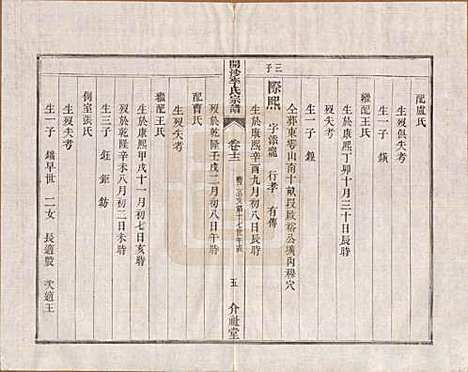 配盧氏
生歿俱失考
生一子 鑛
繼配王氏
生於康熙丁卯十月三十日辰時
歿失考
生一子 鏡
仝葬東零山南十畝段啟裕公塋內穆穴
三子
際熙 字添寵 行孝 有傳
生於康熙辛酉九月初八日辰時
開沙李氏宗譜
卷十三
五
介祉堂
歿於乾隆壬戌二月初八日午時
配曹氏
生歿失考
繼配王氏
生於康熙甲戌十一月初七日亥時
歿於乾隆辛未八月初二日未時
生三子 鈺 鉅 鈁
側室張氏
生歿失考
生一子 鑑早世 二女 長適殷 次適王